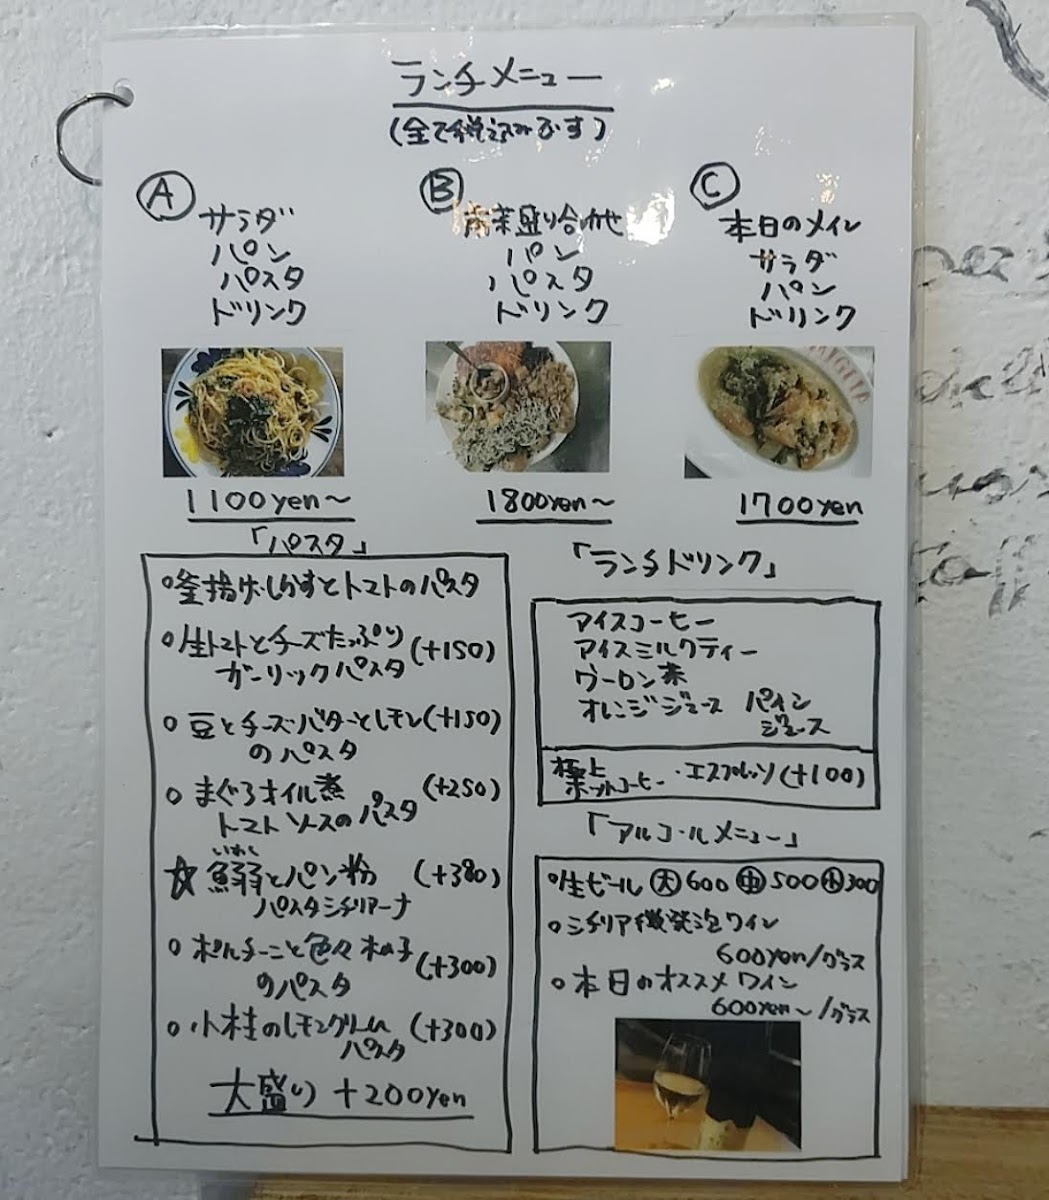 ランチメニュー
(全て税込みです)
A
サラダ
パン
パスタ
ドリンク
1100yen～
B
前菜盛り合わせ
パン
パスタ
ドリンク
1800yen～
C
本日のメイン
サラダ
パン
ドリンク
1700yen
「パスタ」
○釜揚げしらすとトマトのパスタ
○生トマトとチーズたっぷり (+150)
ガーリックパスタ
○豆とチーズ・バターとレモン (+150)
のパスタ
○まぐろオイル煮 (+250)
トマトソースのパスタ
いわし
☆鰯とパン粉 (+380)
パスタシチリアーナ
○ポルチーニと色々木の子 (+300)
のパスタ
○小柱のレモンクリーム (+300)
パスタ
大盛り +200yen
「ランチドリンク」
アイスコーヒー
アイスミルクティー
ウーロン茶
オレンジジュース パイン
ジュース
極上
ホットコーヒー・エスプレッソ (+100)
「アルコールメニュー」
○生ビール 大600 中500 小300
○シチリア微発泡ワイン
600yen/グラス
○本日のオススメワイン
600yen～/グラス